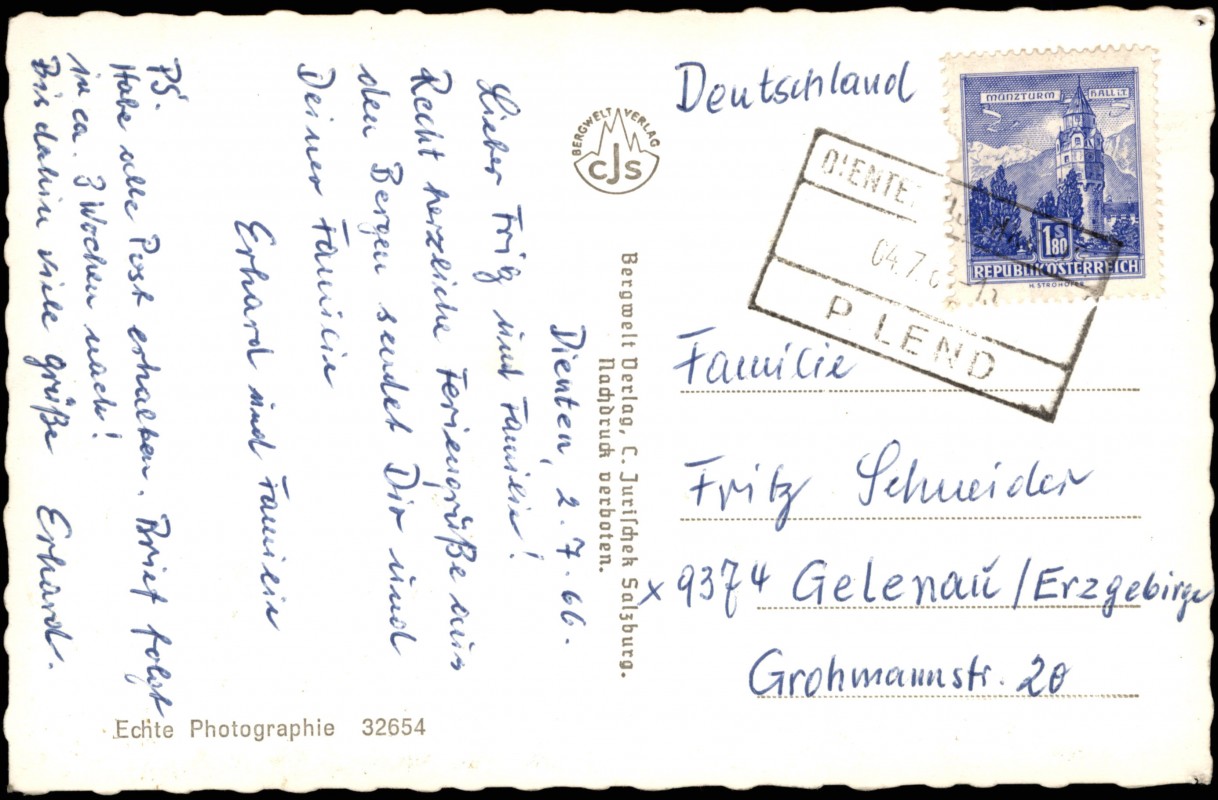 Dienten, 2.7.66.
Lieber Fritz und Familie!
Recht herzliche Feriengrüße aus
den Bergen sendet Dir und
Deiner Familie
Erhard und Familie
PS.
Habe alle Post erhalten. Brief folgt
in ca. 3 Wochen nach!
Bis dahin viele Grüße Erhard.
Echte Photographie 32654
BERGWELT VERLAG
CJS
Bergwelt Verlag, C. Jurischek Salzburg.
Nachdruck verboten.
Deutschland
MÜNZTURM HALL i.T.
1 S 80
REPUBLIK ÖSTERREICH
H. STROHOFER
DIENTE
04.7.6
P LEND
Familie
Fritz Schneider
x 9374 Gelenau/Erzgebirge
Grohmannstr. 20